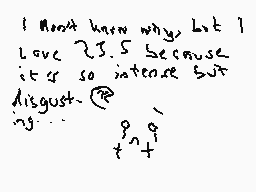 I don't know why, but I
Love 23.5 because
it's so intense but
disgust-
ing...